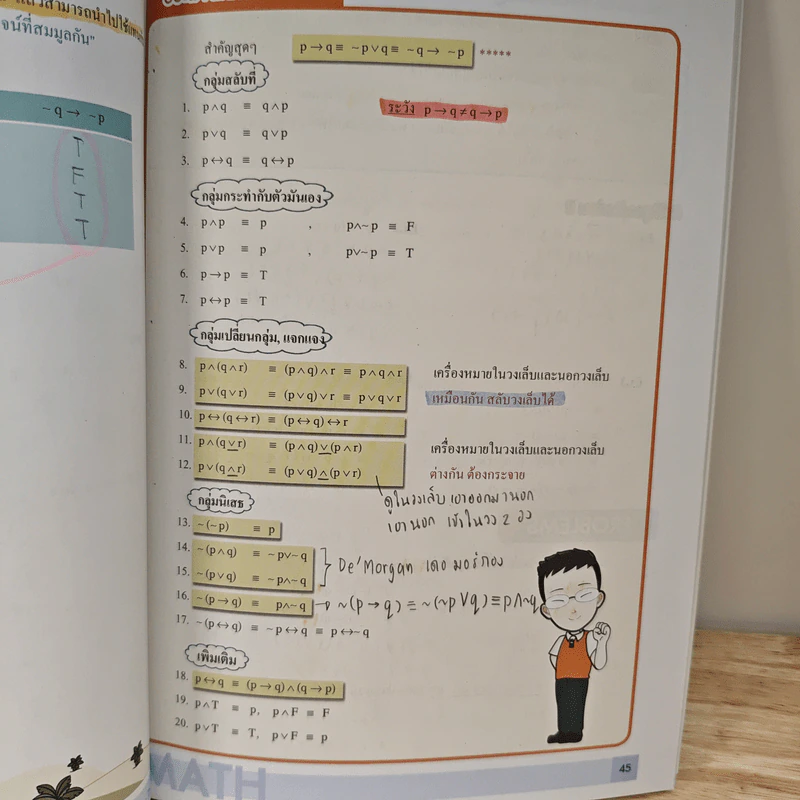 แล้วสามารถนำไปใช้แทน
จน์ที่สมมูลกัน"
~q → ~p
T
F
T
T
สำคัญสุดๆ p → q ≡ ~p ∨ q ≡ ~q → ~p *****
กลุ่มสลับที่
1. p∧q ≡ q∧p ระวัง p → q ≠ q → p
2. p∨q ≡ q∨p
3. p↔q ≡ q↔p
กลุ่มกระทำกับตัวมันเอง
4. p∧p ≡ p , p∧~p ≡ F
5. p∨p ≡ p , p∨~p ≡ T
6. p→p ≡ T
7. p↔p ≡ T
กลุ่มเปลี่ยนกลุ่ม, แจกแจง
8. p∧(q∧r) ≡ (p∧q)∧r ≡ p∧q∧r เครื่องหมายในวงเล็บและนอกวงเล็บ
9. p∨(q∨r) ≡ (p∨q)∨r ≡ p∨q∨r เหมือนกัน สลับวงเล็บได้
10. p↔(q↔r) ≡ (p↔q)↔r
11. p∧(q∨r) ≡ (p∧q)∨(p∧r) เครื่องหมายในวงเล็บและนอกวงเล็บ
12. p∨(q∧r) ≡ (p∨q)∧(p∨r) ต่างกัน ต้องกระจาย
ดูในวงเล็บ เอาออกมานอก
เอานอก เข้าในวง 2 วง
กลุ่มนิเสธ
13. ~(~p) ≡ p
14. ~(p∧q) ≡ ~p∨~q
15. ~(p∨q) ≡ ~p∧~q De'Morgan เดอ มอร์กอง
16. ~(p→q) ≡ p∧~q → ~(p → q) ≡ ~(~p∨q) ≡ p∧~q
17. ~(p↔q) ≡ ~p↔q ≡ p↔~q
เพิ่มเติม
18. p↔q ≡ (p→q)∧(q→p)
19. p∧T ≡ p, p∧F ≡ F
20. p∨T ≡ T, p∨F ≡ p
MATH
45